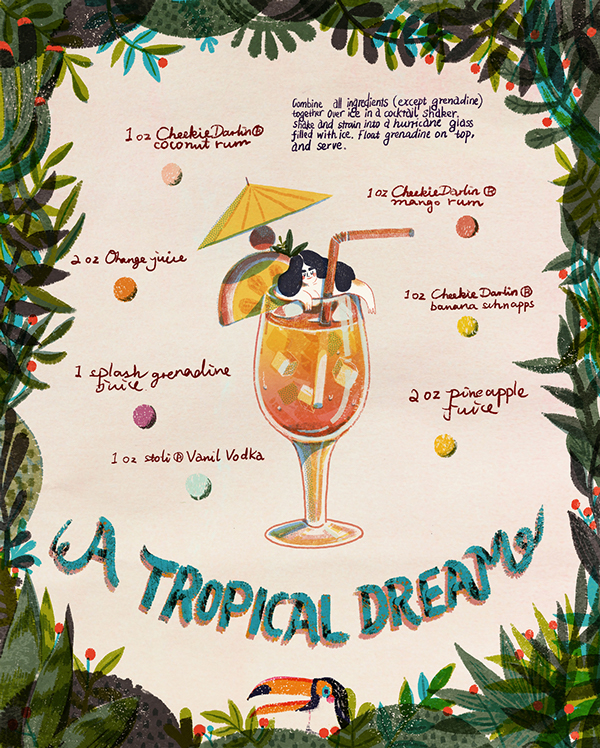 Combine all ingredients (except grenadine)
together over ice in a cocktail shaker.
shake and strain into a hurricane glass
filled with ice. Float grenadine on top,
and serve.
1 oz CheekieDarlin®
coconut rum
1 oz CheekieDarlin®
mango rum
2 oz Orange juice
1 oz CheekieDarlin®
banana schnapps
1 splash grenadine
juice
2 oz pineapple
juice
1 oz stoli® Vanil Vodka
A TROPICAL DREAM